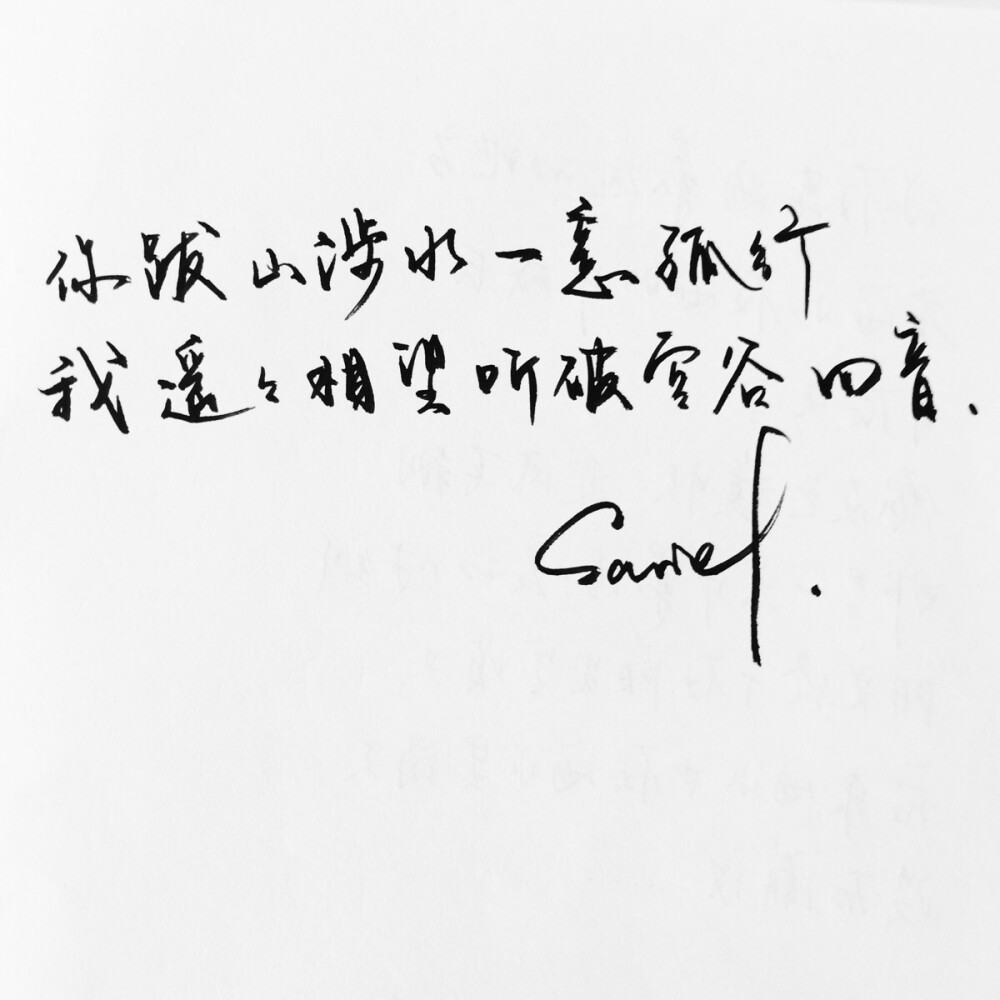 你跋山涉水一意孤行
我遥々相望听破空谷回音.